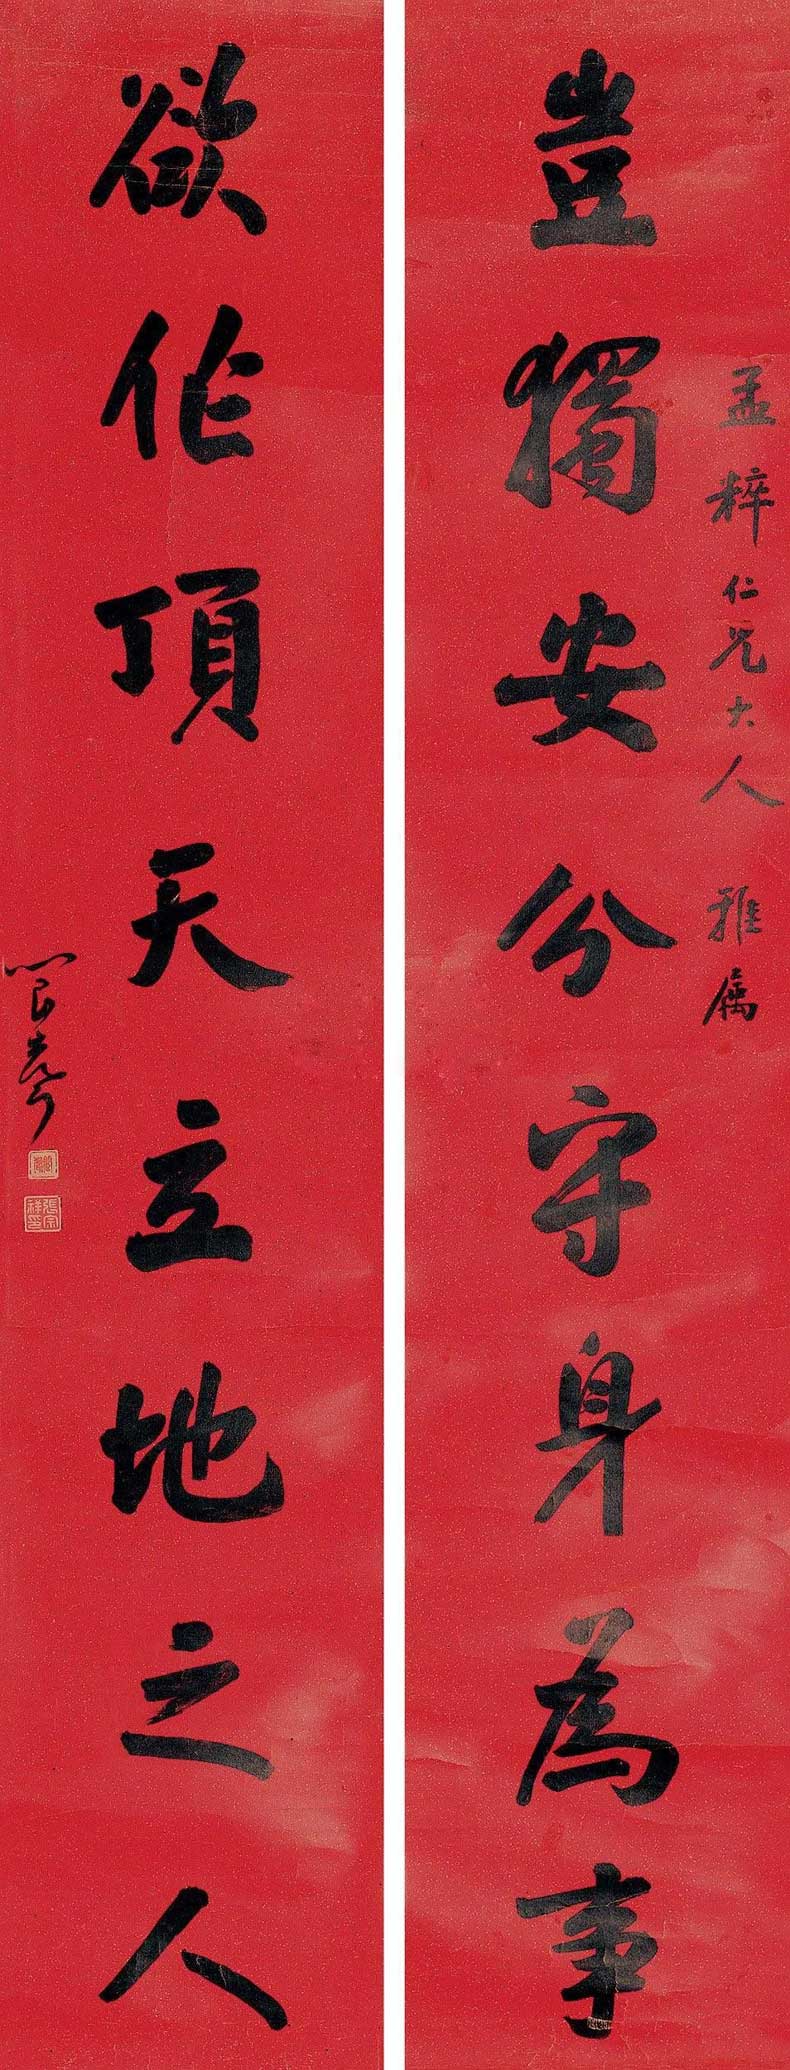 孟粹仁兄大人 雅属
豈獨安分守身為事
欲作頂天立地之人
張宗祥印